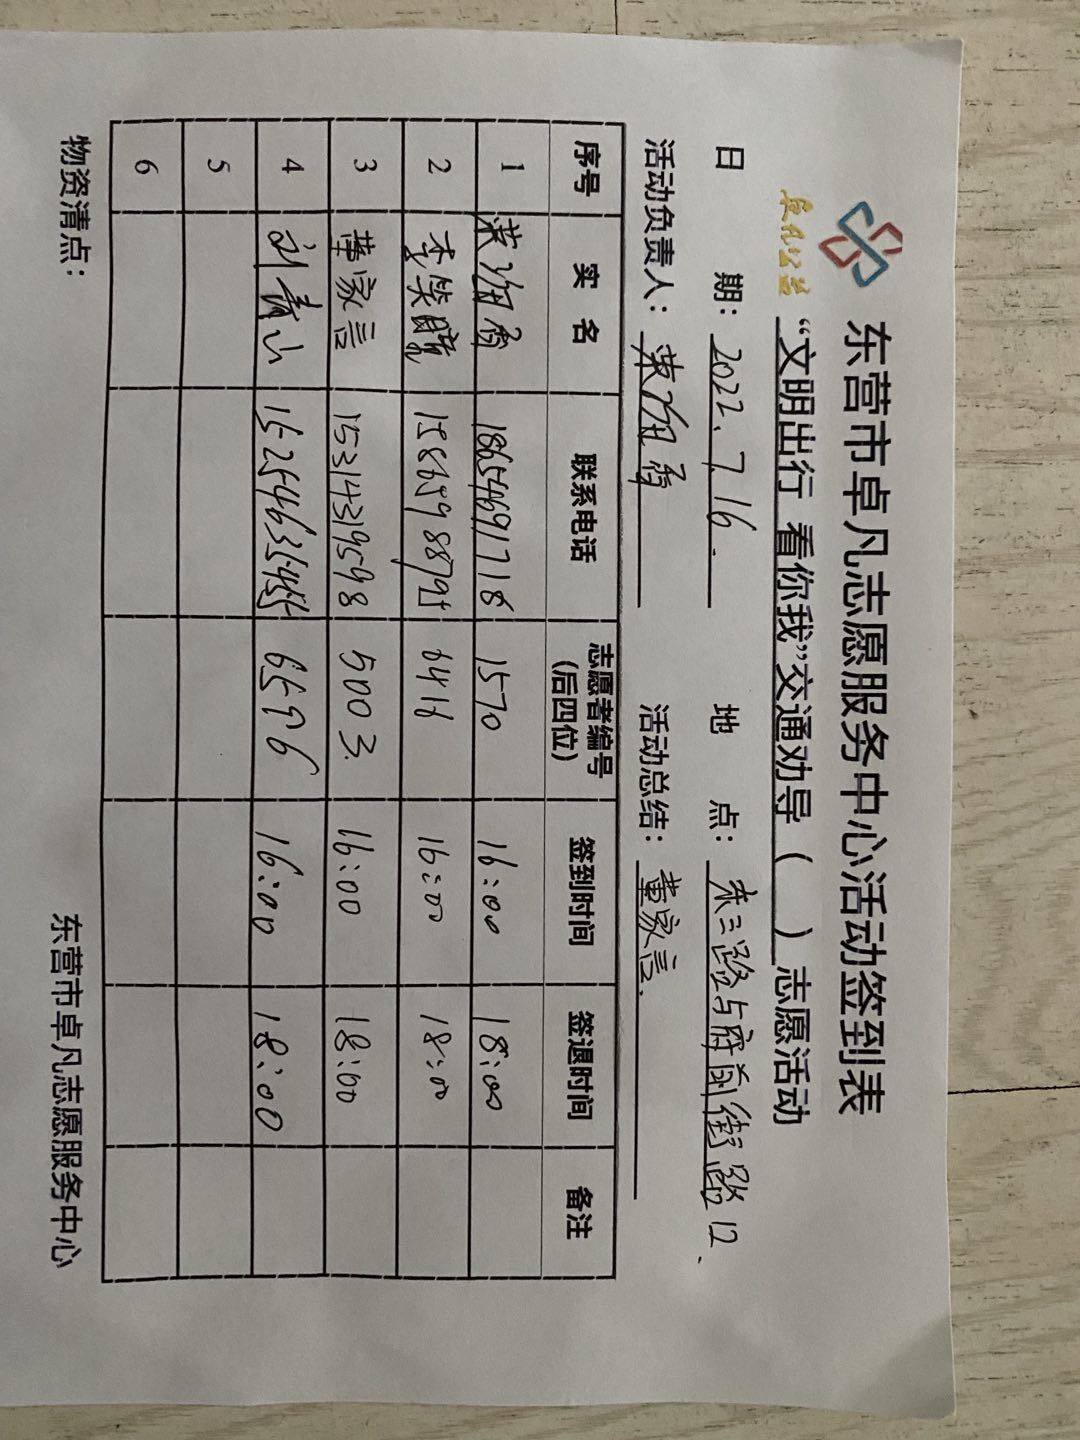 卓凡公益
东营市卓凡志愿服务中心活动签到表
“文明出行 看你我”交通劝导（ ）志愿活动
日 期：2022.7.16. 地 点：东三路与府前街路口.
活动负责人： 活动总结：董家言.
序号 实 名 联系电话 志愿者编号（后四位） 签到时间 签退时间 备注
1 18654691718 1570 16:00 18:00
2 李笑 6416 16:00 18:00
3 董家言 15314319598 5003 16:00 18:00
4 刘青山 6576 16:00 18:00
5
6
物资清点： 东营市卓凡志愿服务中心